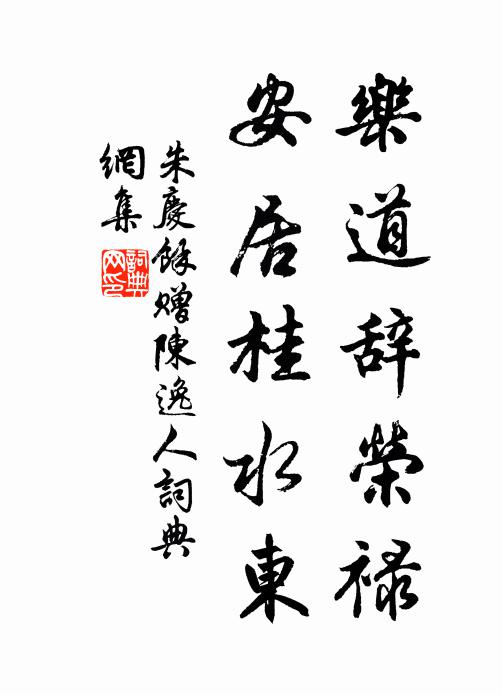 樂道辞榮禄
安居桂水東
朱慶餘赠陳逸人詞典
網集
詞典網印